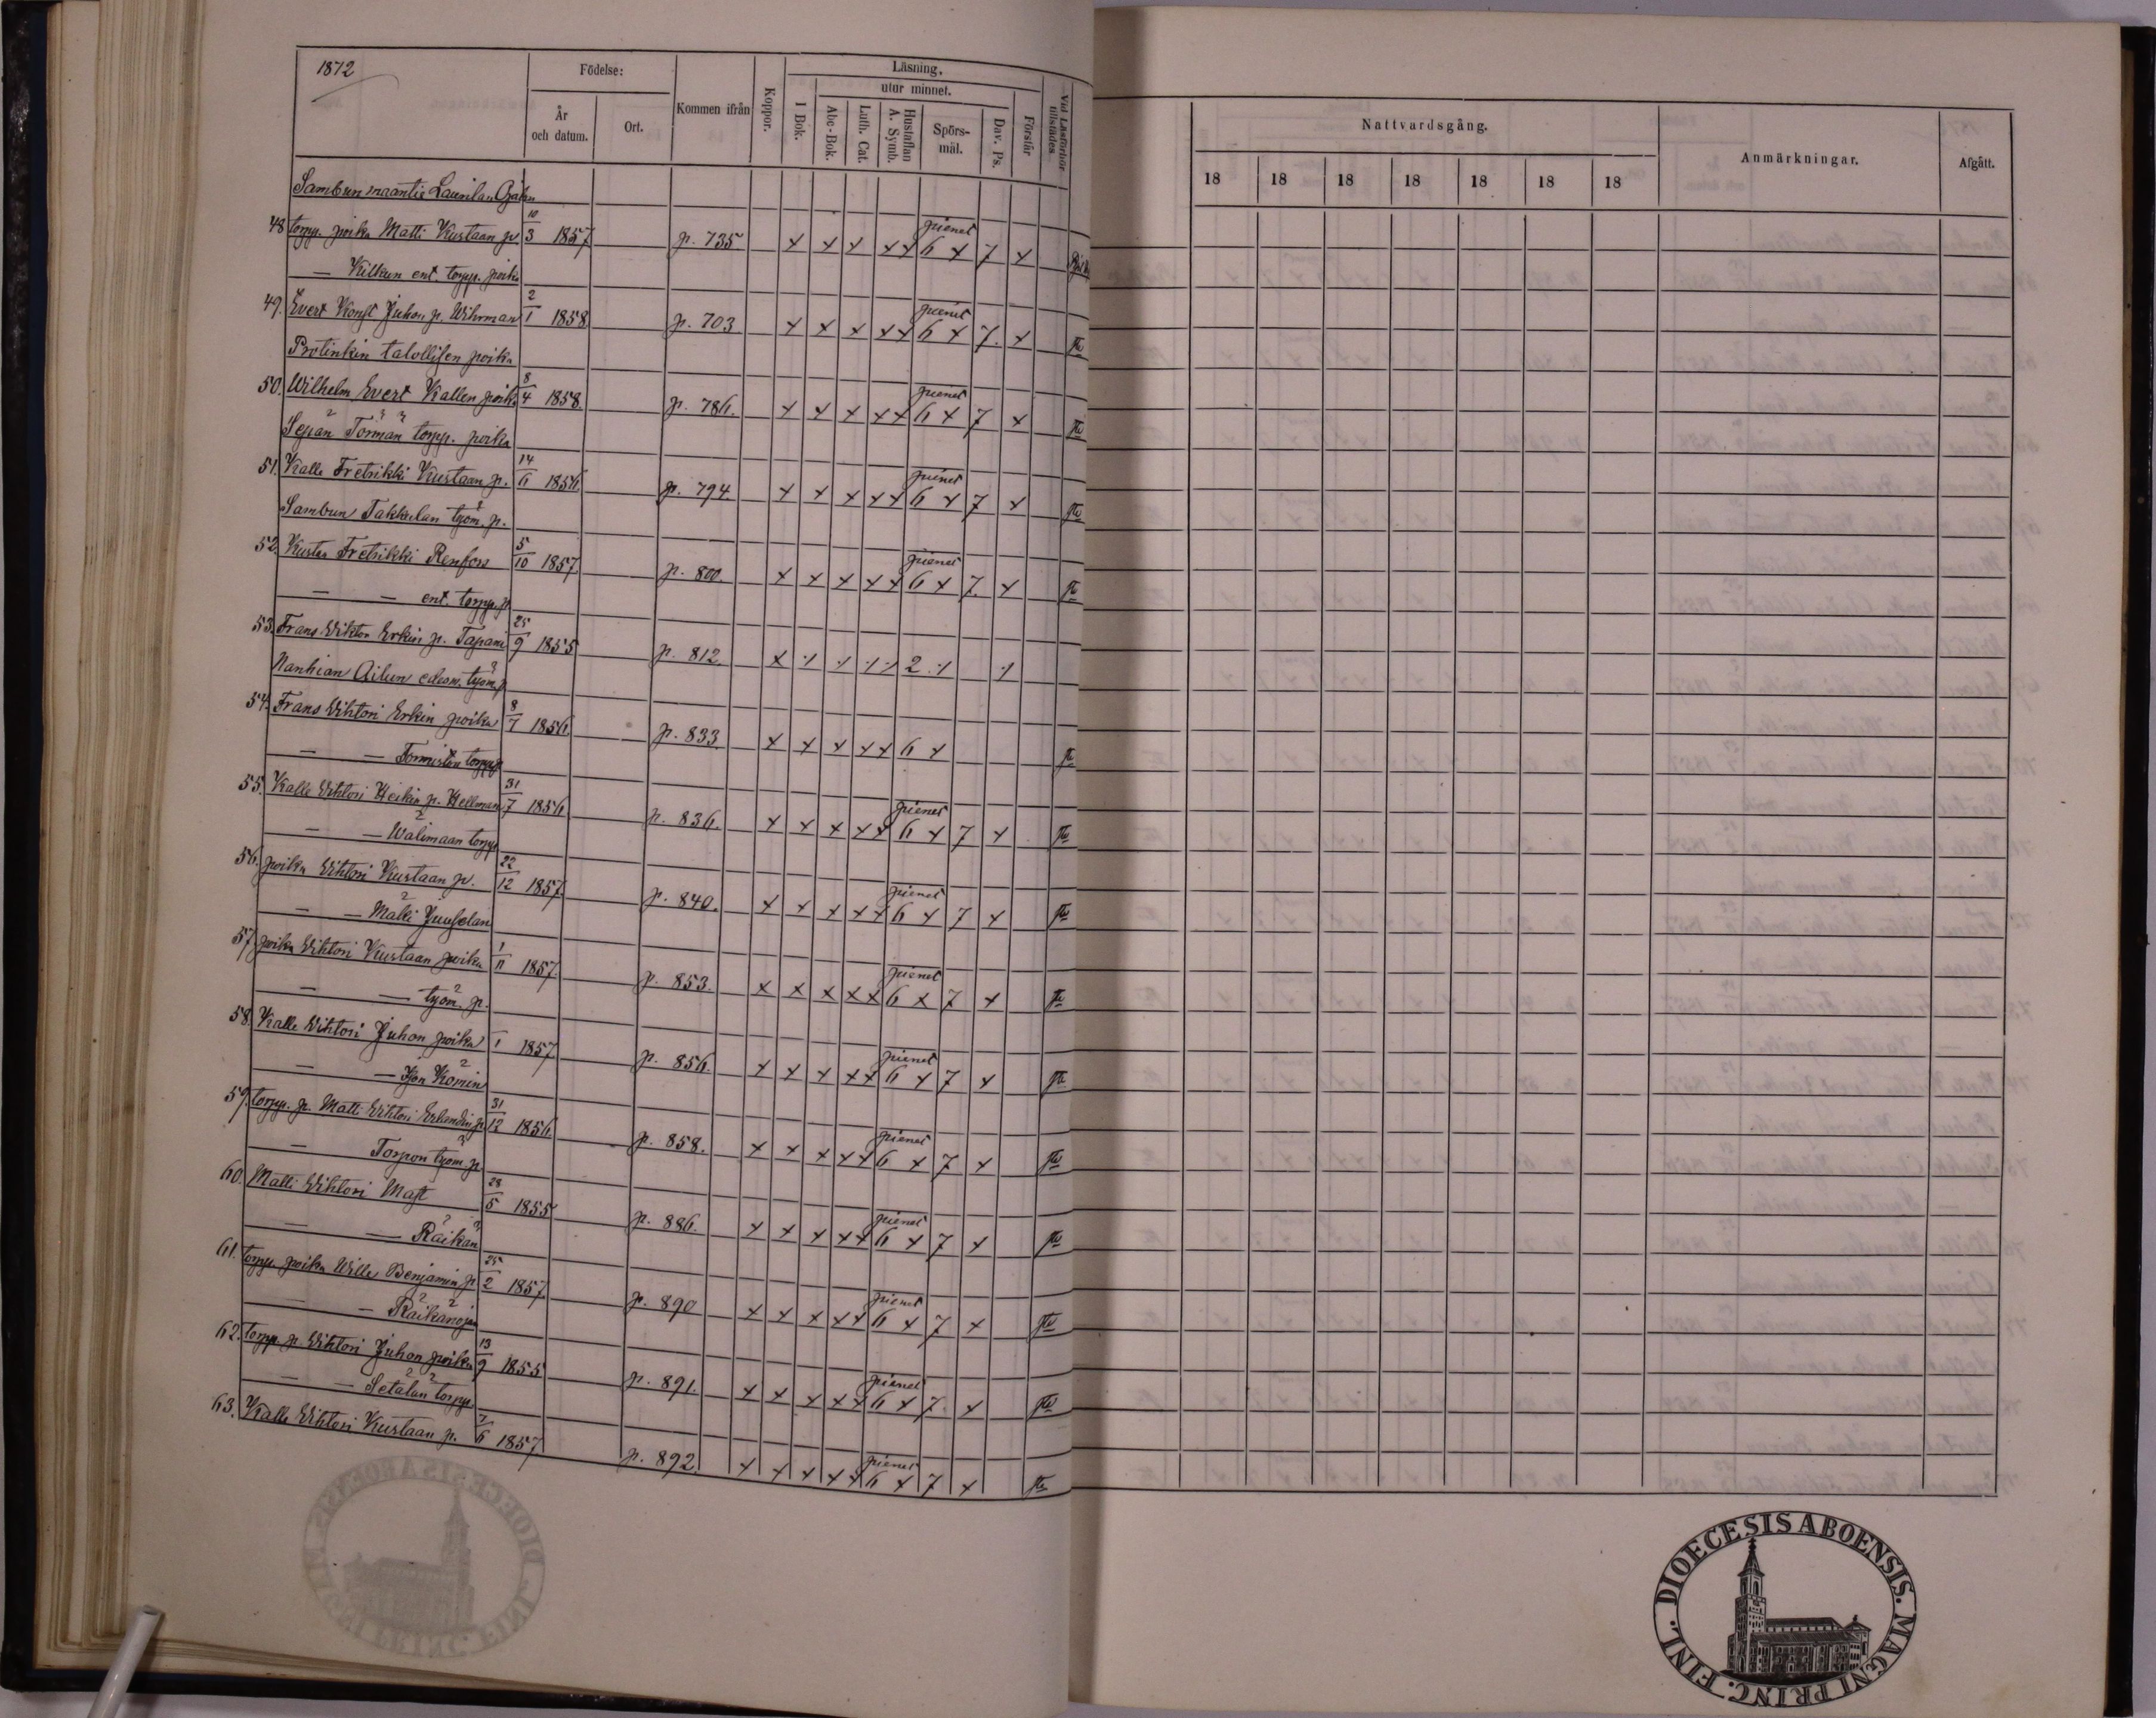 1872
Födelse:
År och datum.
Ort.
Kommen ifrån
Koppor.
Läsning,
utur minnet.
I Bok.
Abc-Bok.
Luth. Cat.
Hustaflan A. Symb.
Spörs-mål.
Dav. Ps.
Förstår
Vid Läsförhör tillstädes
Nattvardsgång.
18 18 18 18 18 18 18
Anmärkningar.
Afgått.
Sambun maantie Launilan Ojalan
48 torpp. poika Matti Kustaan p 10/3 1857 p. 735 x x x x x pienet 6 x 7 x
— Kilkun ent. torpp. poika
49. Evert Konst Juhon p. Wihrman 2/1 1858. p. 703 x x x x x pienet 6 x 7. x
Protinkin talollisen poika
50. Wilhelm Evert Kallen poika 8/4 1858. p. 786. x x x x x pienet 6 x 7 x
Sepän Törmän torpp. poika
51. Kalle Fretrikki Kustaan p. 14/6 1856 p. 794. x x x x x pienet 6 x 7 x
Sambun Takkulan työm. p.
52. Kustaa Fretrikki Renfors 5/10 1857 p. 800. x x x x x pienet 6 x 7. x
— — ent. torpp. p
53. Frans Wiktor Erkin p. Tapani 25/9 1855 p. 812. x 1 1 1 1 2 1 1
Nanhian Ailun edesm. työm. p
54. Frans Wihtori Erkin poika 8/7 1856 p. 833. x x x x x 6 x
— — Tormiston torpp
55. Kalle Wihtori Heikin p. Hellman 31/7 1856 p. 836. x x x x x pienet 6 x 7 x
— — Walimaan torpp
56. poika Wihtori Kustaan p. 22/12 1857 p. 840. x x x x x pienet 6 x 7 x
— — Mäki Juuselan
57. poika Wihtori Kustaan poika 1/11 1857. p. 853. x x x x x pienet 6 x 7 x
— — työm. p.
58. Kalle Wihtori Juhon poika 1 1857 p. 856. x x x x x pienet 6 x 7 x
— — Ison Komin
59. torpp. p. Matti Wihtori Erlandin p 31/12 1856. p. 858. x x x x x pienet 6 x 7 x
— Torpon työm. p
60. Matti Wihtori Matt 28/5 1855 p. 886. x x x x x pienet 6 x 7 x
— — Räikän
61. torpp. poika Wille Benjamin p 25/2 1857 p. 890 x x x x x pienet 6 x 7 x
— — Räikänojan
62. torpp. p. Wihtori Juhon poika 13/9 1855 p. 891. x x x x x pienet 6 x 7 x
— — Setälän torpp.
63. Kalle Wihtori Kustaan p. 7/6 1857 p. 892. x x x x x pienet 6 x 7 x
DIOECESIS ABOENSIS. MAGNI PRINC. FINL.